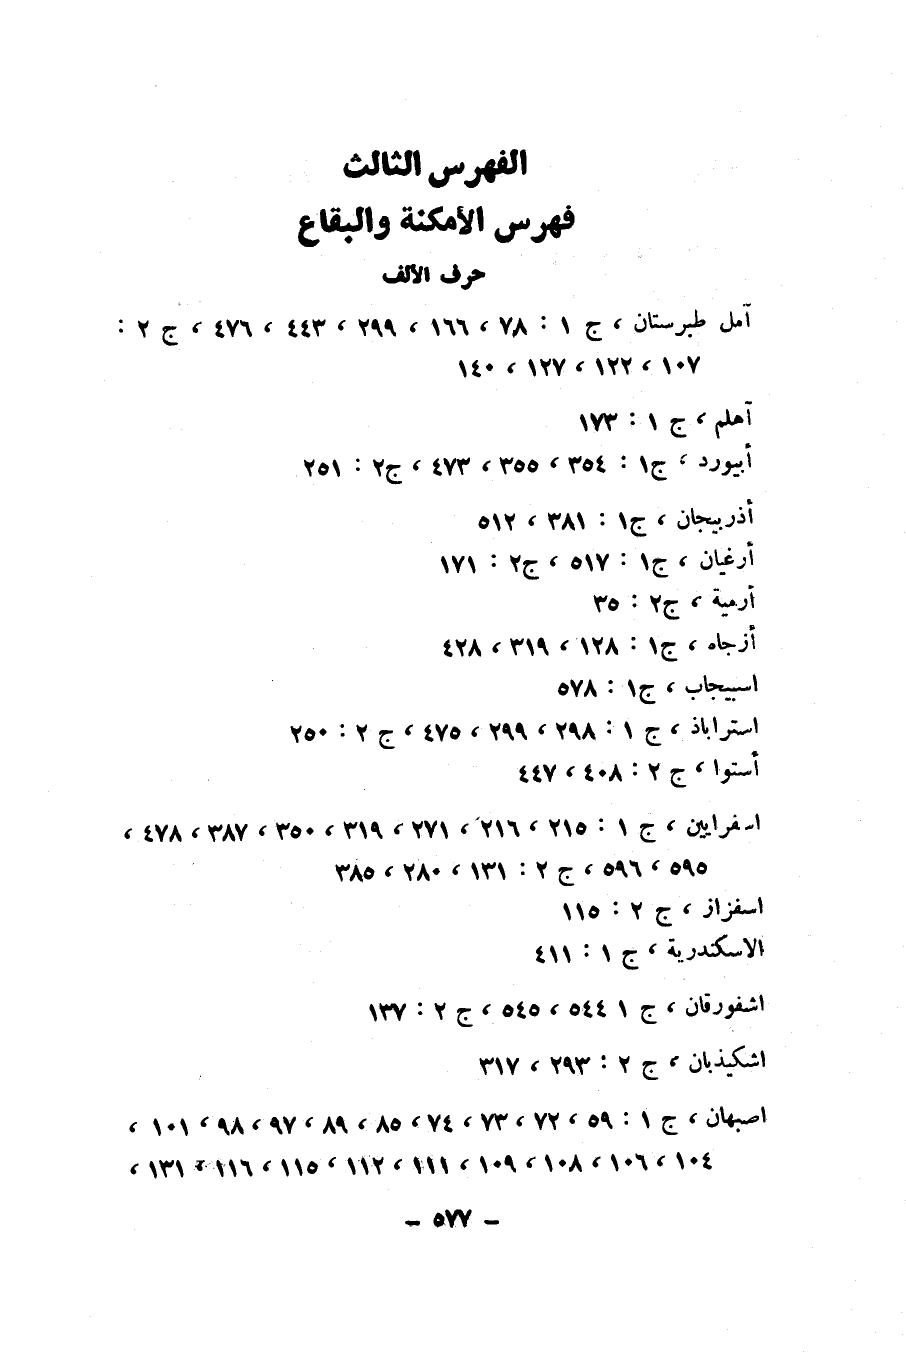 الفهرس الثالث
فهرس الأمكنة والبقاع
حرف الألف
آمل طبرستان ، ج ١ : ٧٨ ، ١٦٦ ، ٢٩٩ ، ٤٤٣ ، ٤٧٦ ، ج ٢ :
١٠٧ ، ١٢٢ ، ١٢٧ ، ١٤٠
آهلم ، ج ١ : ١٧٣
أبيورد ، ج١ : ٣٥٤ ، ٣٥٥ ، ٤٧٣ ، ج٢ : ٢٥١
أذربيجان ، ج١ : ٣٨١ ، ٥١٢
أرغيان ، ج١ : ٥١٧ ، ج٢ : ١٧١
أرمية ، ج٢ : ٣٥
أزجاه ، ج١ : ١٢٨ ، ٣١٩ ، ٤٢٨
اسبيجاب ، ج١ : ٥٧٨
استراباذ ، ج ١ : ٢٩٨ ، ٢٩٩ ، ٤٧٥ ، ج ٢ : ٢٥٠
أستوا ، ج ٢ : ٤٠٨ ، ٤٤٧
اسفرايين ، ج ١ : ٢١٥ ، ٢١٦ ، ٢٧١ ، ٣١٩ ، ٣٥٠ ، ٣٨٧ ، ٤٧٨ ،
٥٩٥ ، ٥٩٦ ، ج ٢ : ١٣١ ، ٢٨٠ ، ٣٨٥
اسفزاز ، ج ٢ : ١١٥
الاسكندرية ، ج ١ : ٤١١
اشفورقان ، ج ١ ٥٤٤ ، ٥٤٥ ، ج ٢ : ١٣٧
اشكيذبان ، ج ٢ : ٢٩٣ ، ٣١٧
اصبهان ، ج ١ : ٥٩ ، ٧٢ ، ٧٣ ، ٧٤ ، ٨٥ ، ٨٩ ، ٩٧ ، ٩٨ ، ١٠١ ،
١٠٤ ، ١٠٦ ، ١٠٨ ، ١٠٩ ، ١١١ ، ١١٢ ، ١١٥ ، ١١٦ ، ١٣١ ،
– ٥٧٧ –